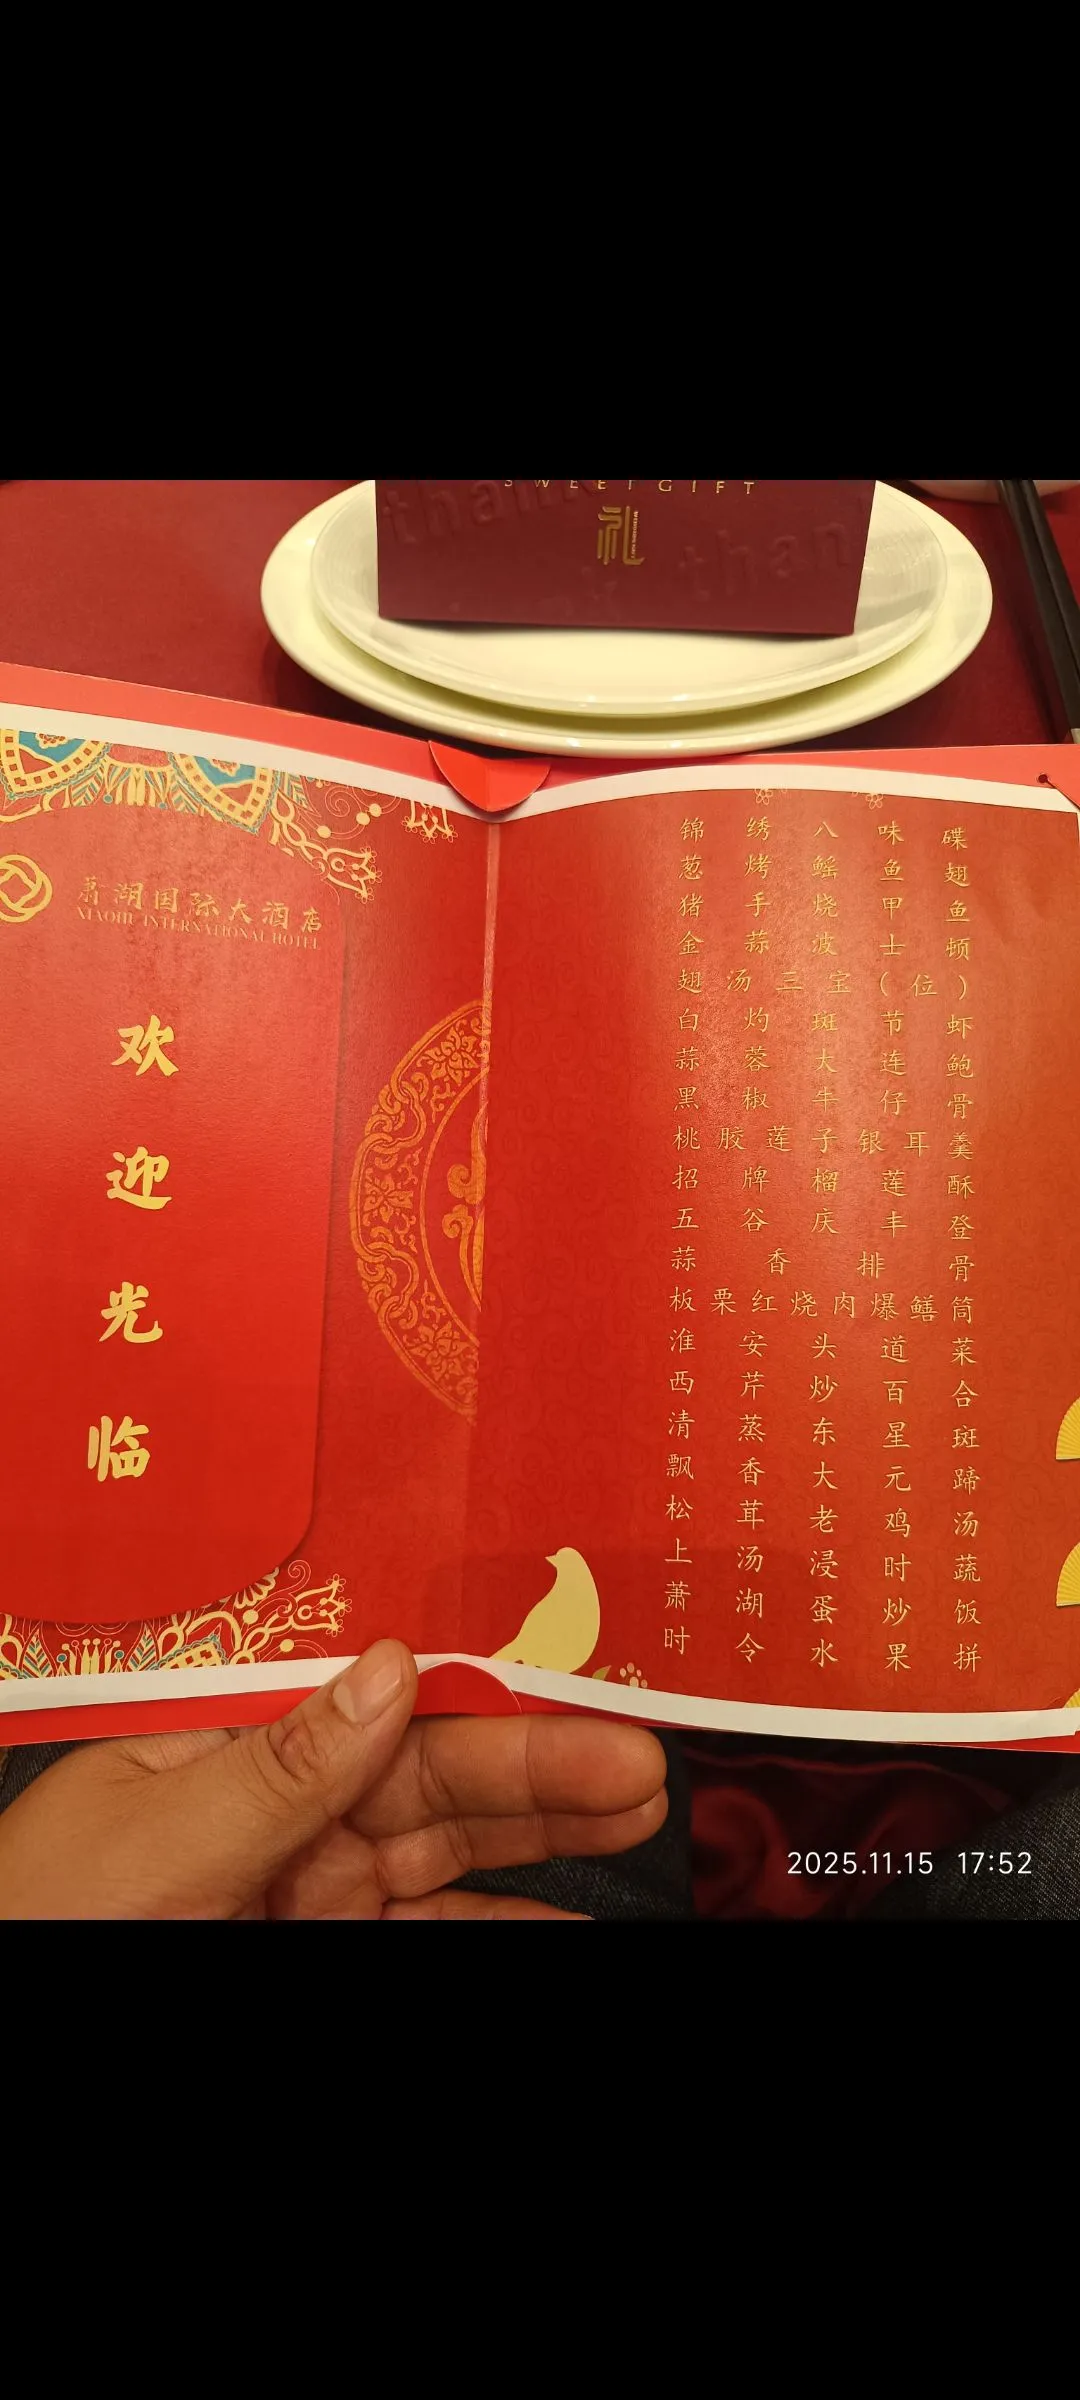 SWEETGIFT
礼
thank
than
萧湖国际大酒店
XIAOHU INTERNATIONAL HOTEL
欢
迎
光
临
锦绣八味碟
葱烤鳐鱼翅
猪手烧甲鱼
金蒜波士顿
翅汤三宝(位)
白灼斑节虾
蒜蓉大连鲍
黑椒牛仔骨
桃胶莲子银耳羹
招牌榴莲酥
五谷庆丰登
蒜香排骨
板栗红烧肉爆鳝筒
淮安头道菜
西芹炒百合
清蒸东星斑
飘香大元蹄
松茸老鸡汤
上汤浸时蔬
萧湖蛋炒饭
时令水果拼
2025.11.15 17:52